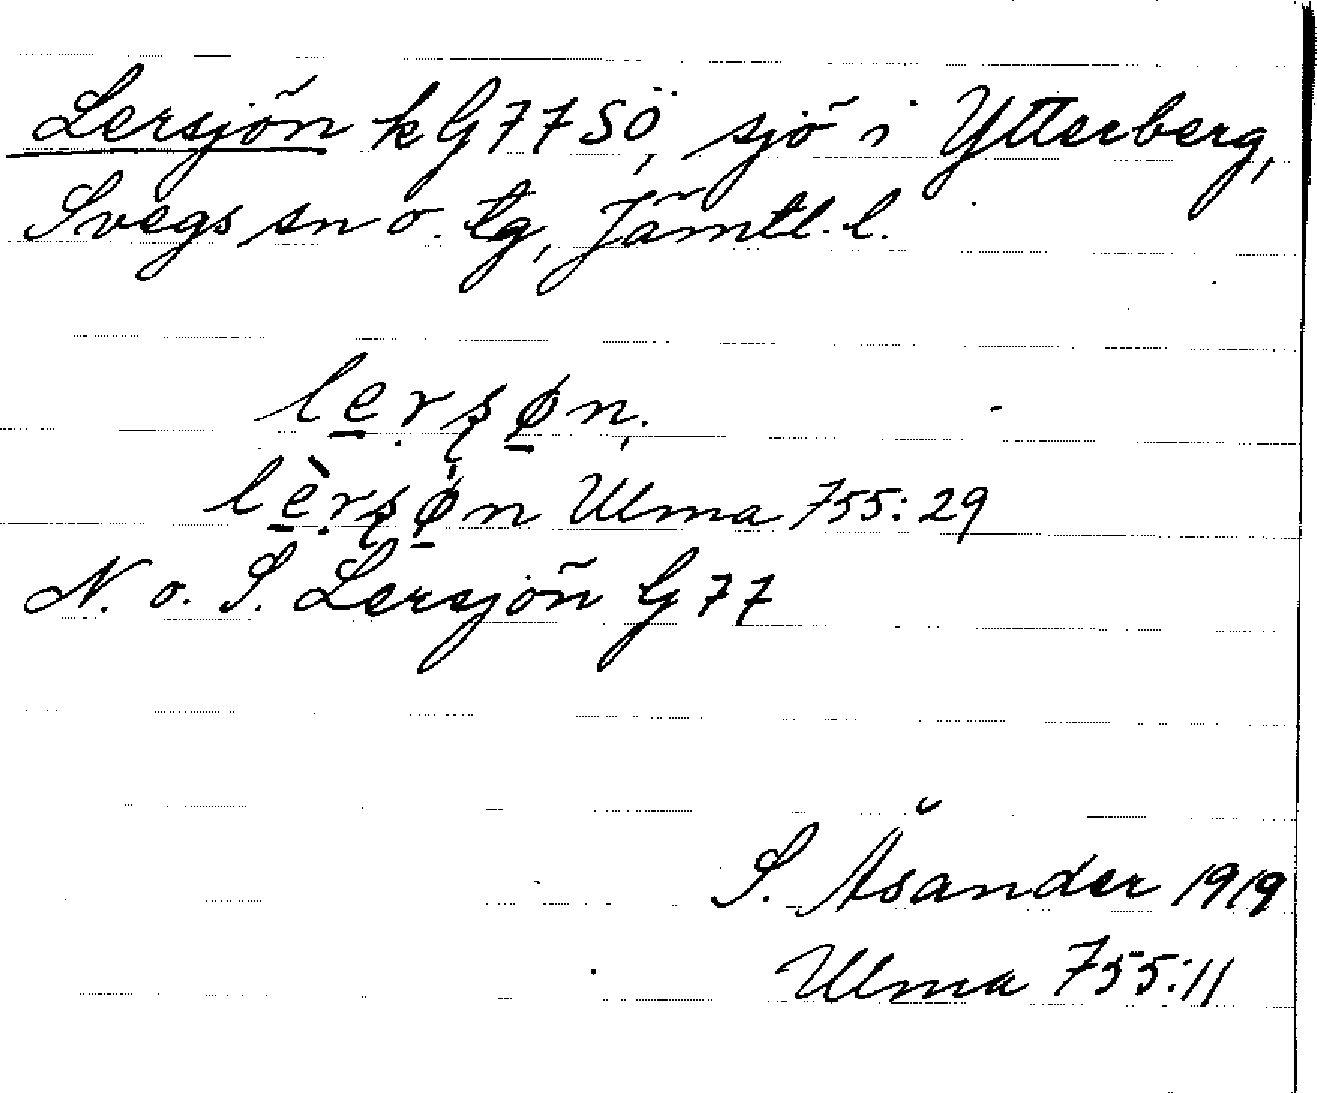 Lersjön k G 77 SÖ, sjö i Ytterberg,
Svegs sn o. tg, Jämtl. l.
le̲ṛʂø̲n.
lè̲ṛʂø̲n Ulma 755:29
N. o. S. Lersjön G 77
S. Åsander 1919
Ulma 755:11